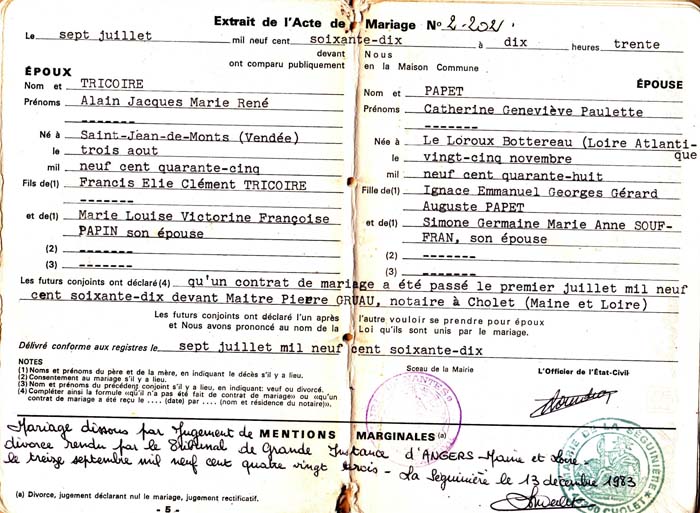 Extrait de l'Acte de Mariage No 2-202
Le sept juillet mil neuf cent soixante-dix à dix heures trente
devant Nous
ont comparu publiquement en la Maison Commune
ÉPOUX
Nom et TRICOIRE
Prénoms Alain Jacques Marie René
-------
Né à Saint-Jean-de-Monts (Vendée)
le trois aout
mil neuf cent quarante-cinq
Fils de(1) Francis Elie Clément TRICOIRE
-------
et de(1) Marie Louise Victorine Françoise
PAPIN son épouse
(2) -------
(3) -------
ÉPOUSE
Nom et PAPET
Prénoms Catherine Geneviève Paulette
-------
Née à Le Loroux Bottereau (Loire Atlanti-
que
le vingt-cinq novembre
mil neuf cent quarante-huit
Fille de(1) Ignace Emmanuel Georges Gérard
Auguste PAPET
et de(1) Simone Germaine Marie Anne SOUF-
FRAN, son épouse
(2) -------
(3) -------
Les futurs conjoints ont déclaré(4) qu'un contrat de mariage a été passé le premier juillet mil neuf
cent soixante-dix devant Maitre Pierre GRUAU, notaire à Cholet (Maine et Loire)
Les futurs conjoints ont déclaré l'un après l'autre vouloir se prendre pour époux
et Nous avons prononcé au nom de la Loi qu'ils sont unis par le mariage.
Délivré conforme aux registres le sept juillet mil neuf cent soixante-dix
NOTES
(1) Noms et prénoms du père et de la mère, en indiquant le décès s'il y a lieu.
(2) Consentement au mariage s'il y a lieu.
(3) Nom et prénoms du précédent conjoint s'il y a lieu, en indiquant: veuf ou divorcé.
(4) Compléter ainsi la formule «qu'il n'a pas été fait de contrat de mariage» ou «qu'un
contrat de mariage a été reçu le .... (date) par .... (nom et résidence du notaire)».
Sceau de la Mairie
L'Officier de l'État-Civil
MENTIONS MARGINALES (a)
Mariage dissous par Jugement de
divorce rendu par le Tribunal de Grande Instance d'ANGERS Maine et Loire -
le treize septembre mil neuf cent quatre vingt trois - La Séguinière le 13 décembre 1983
MAIRIE DE LA SEGUINIERE
CHOLET
(a) Divorce, jugement déclarant nul le mariage, jugement rectificatif.
- 5 -